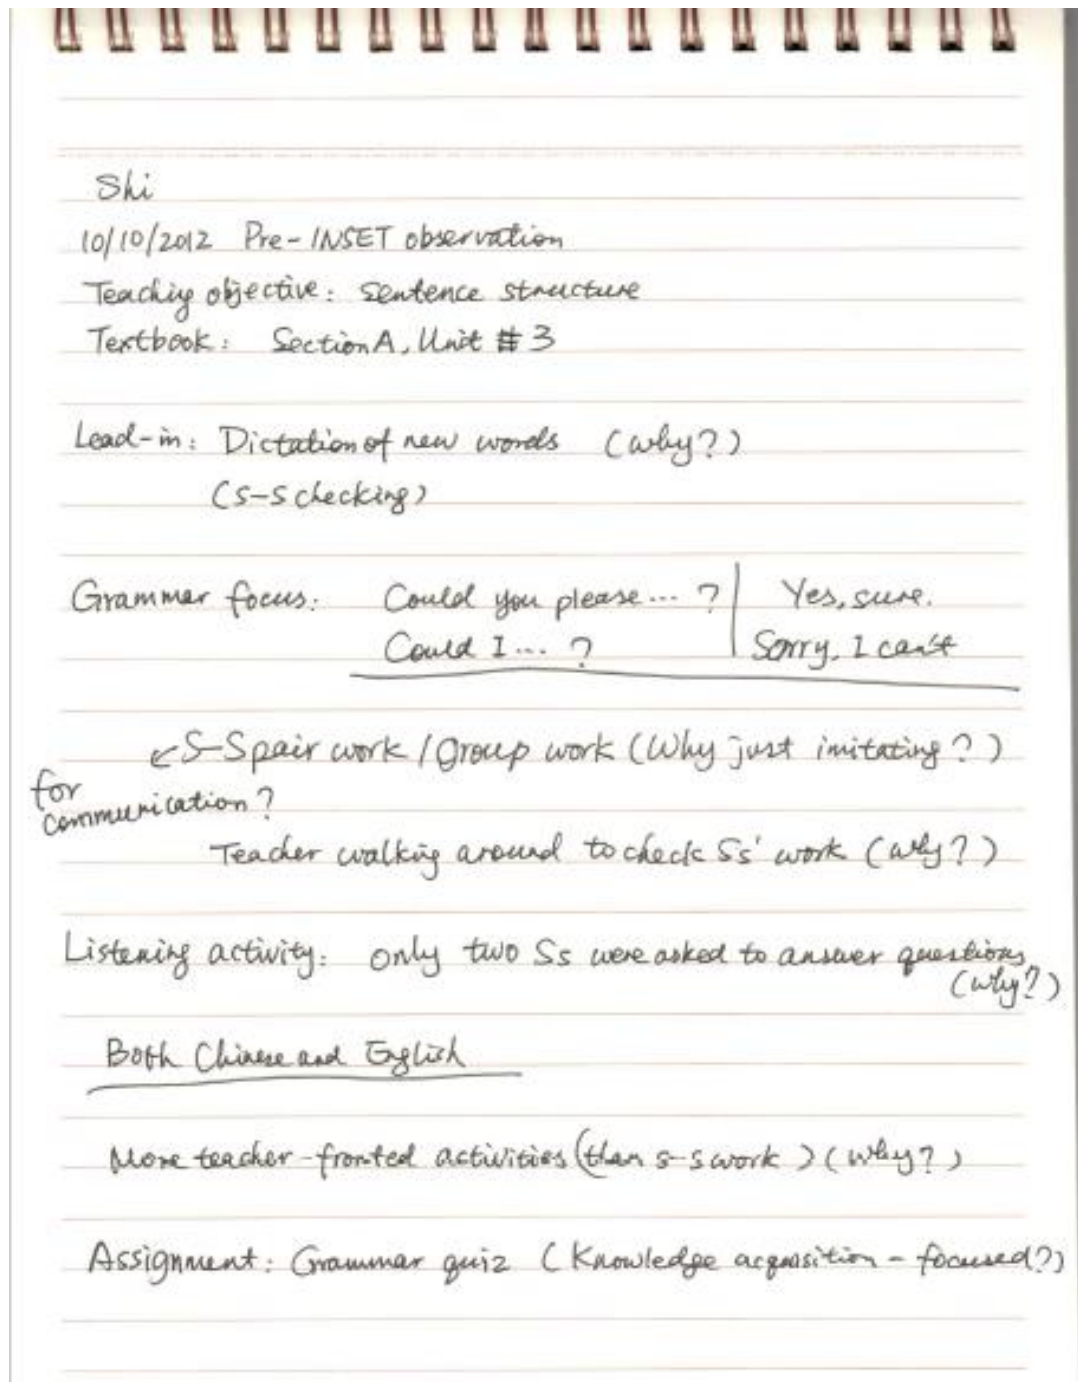 Shi
10/10/2012 Pre-INSET observation
Teaching objective: Sentence structure
Textbook: Section A, Unit #3
Lead-in: Dictation of new words (why?)
(S-S checking)
Grammar focus: Could you please... ? | Yes, sure.
Could I... ? | Sorry, I can't
↙ S-S pair work / Group work (Why just imitating?)
for
communication?
Teacher walking around to check Ss' work (why?)
Listening activity: only two Ss were asked to answer questions
(why?)
Both Chinese and English
More teacher-fronted activities (than s-s work) (why?)
Assignment: Grammar quiz (Knowledge acquisition - focused?)